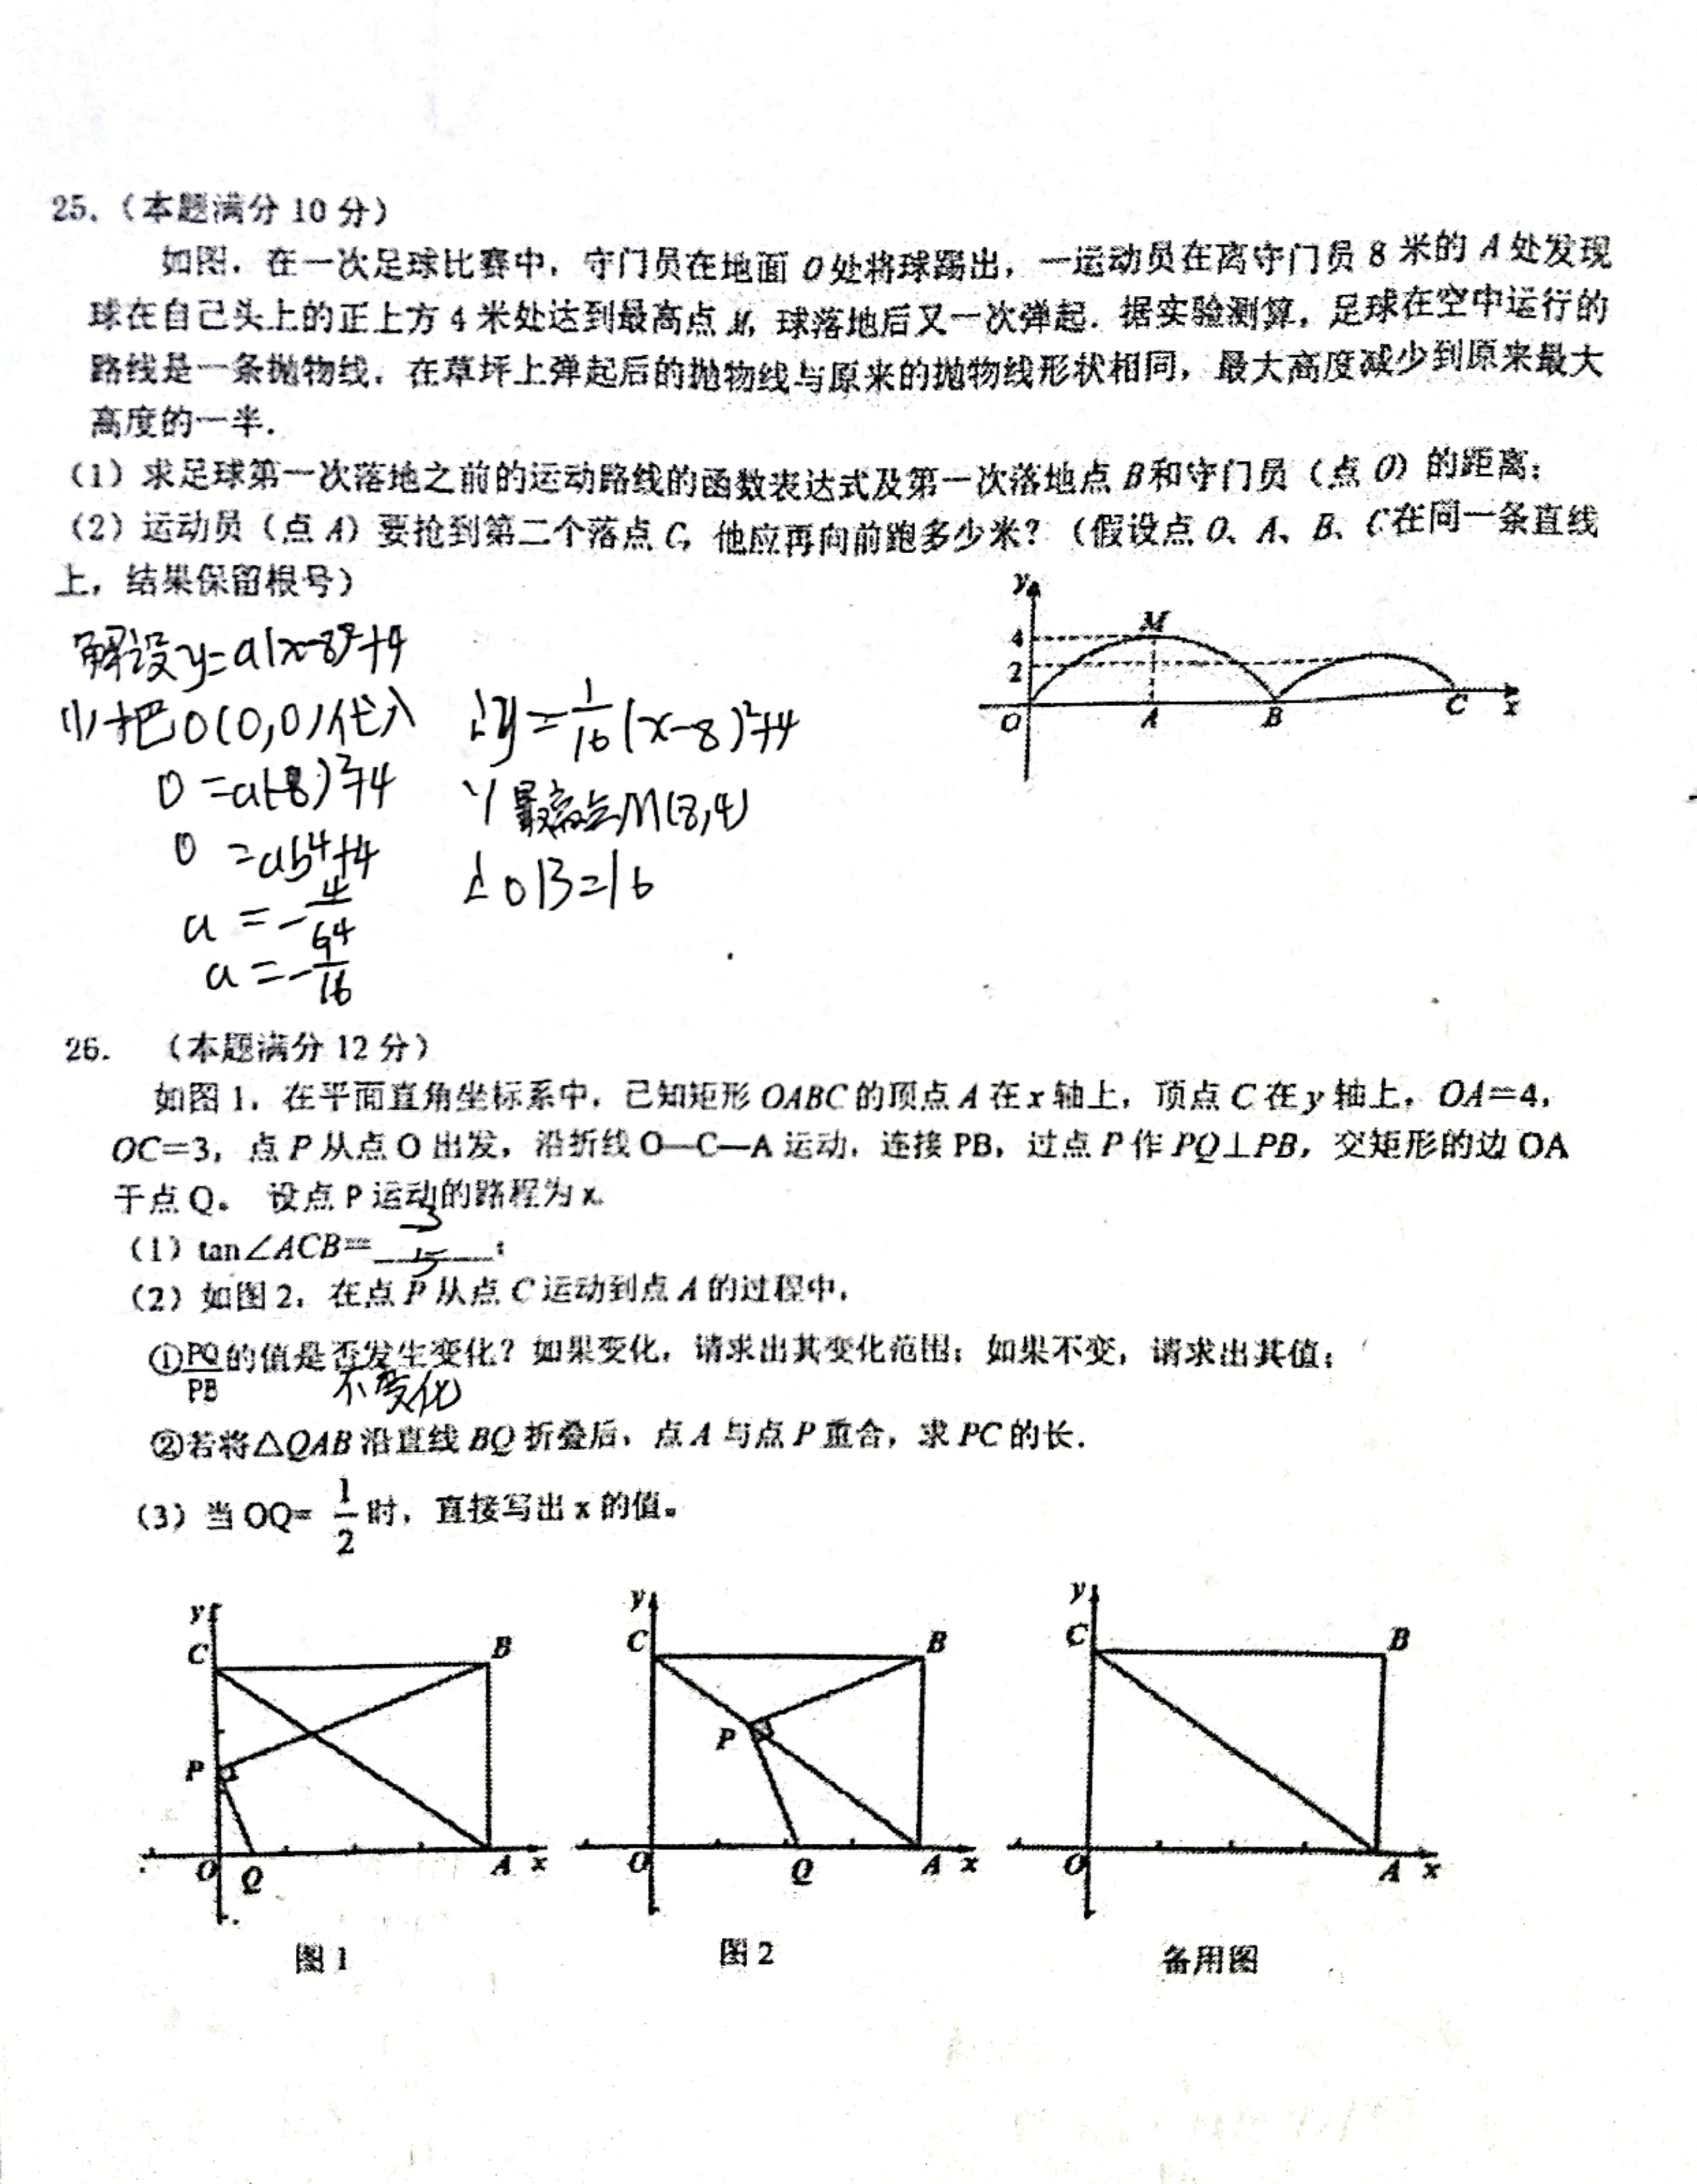 25.（本题满分 10 分）
如图，在一次足球比赛中，守门员在地面 O 处将球踢出，一运动员在离守门员 8 米的 A 处发现
球在自己头上的正上方 4 米处达到最高点 M，球落地后又一次弹起．据实验测算，足球在空中运行的
路线是一条抛物线，在草坪上弹起后的抛物线与原来的抛物线形状相同，最大高度减少到原来最大
高度的一半．
（1）求足球第一次落地之前的运动路线的函数表达式及第一次落地点 B 和守门员（点 O）的距离；
（2）运动员（点 A）要抢到第二个落点 C，他应再向前跑多少米？（假设点 O、A、B、C 在同一条直线
上，结果保留根号）
y
M
4
2
O A B C x
解设y=a(x-8)²+4
(1)把O(0,0)代入
0=a(-8)²+4
0=a64+4
a=-4/64
a=-1/16
∴y=1/16(x-8)²+4
∵最高点M(8,4)
∴OB=16
26. （本题满分 12 分）
如图 1，在平面直角坐标系中，已知矩形 OABC 的顶点 A 在 x 轴上，顶点 C 在 y 轴上，OA=4，
OC=3，点 P 从点 O 出发，沿折线 O—C—A 运动，连接 PB，过点 P 作 PQ⊥PB，交矩形的边 OA
于点 Q。 设点 P 运动的路程为 x.
（1）tan∠ACB=3/5；
（2）如图 2，在点 P 从点 C 运动到点 A 的过程中，
①PQ/PB的值是否发生变化？如果变化，请求出其变化范围；如果不变，请求出其值；
不变化
②若将△QAB 沿直线 BQ 折叠后，点 A 与点 P 重合，求 PC 的长．
（3）当 OQ= 1/2 时，直接写出 x 的值。
y
C B
P
O Q A x
图 1
y
C B
P
O Q A x
图 2
y
C B
O A x
备用图